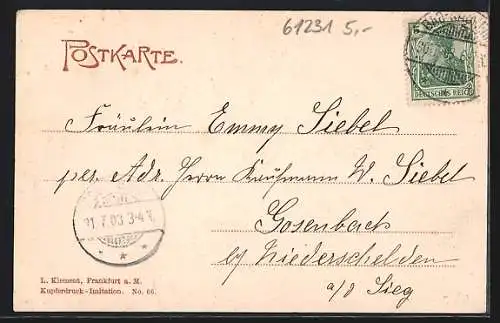 61231 5,-
POSTKARTE.
DEUTSCHES REICH
Fräulein Emmy Siebel
per. Adr. Herrn Kaufmann W. Siebel
31.7.03 3-4
Gosenbach
b/ Niederschelden
a/d Sieg
L. Klement, Frankfurt a. M.
Kupferdruck-Imitation. No. 66.